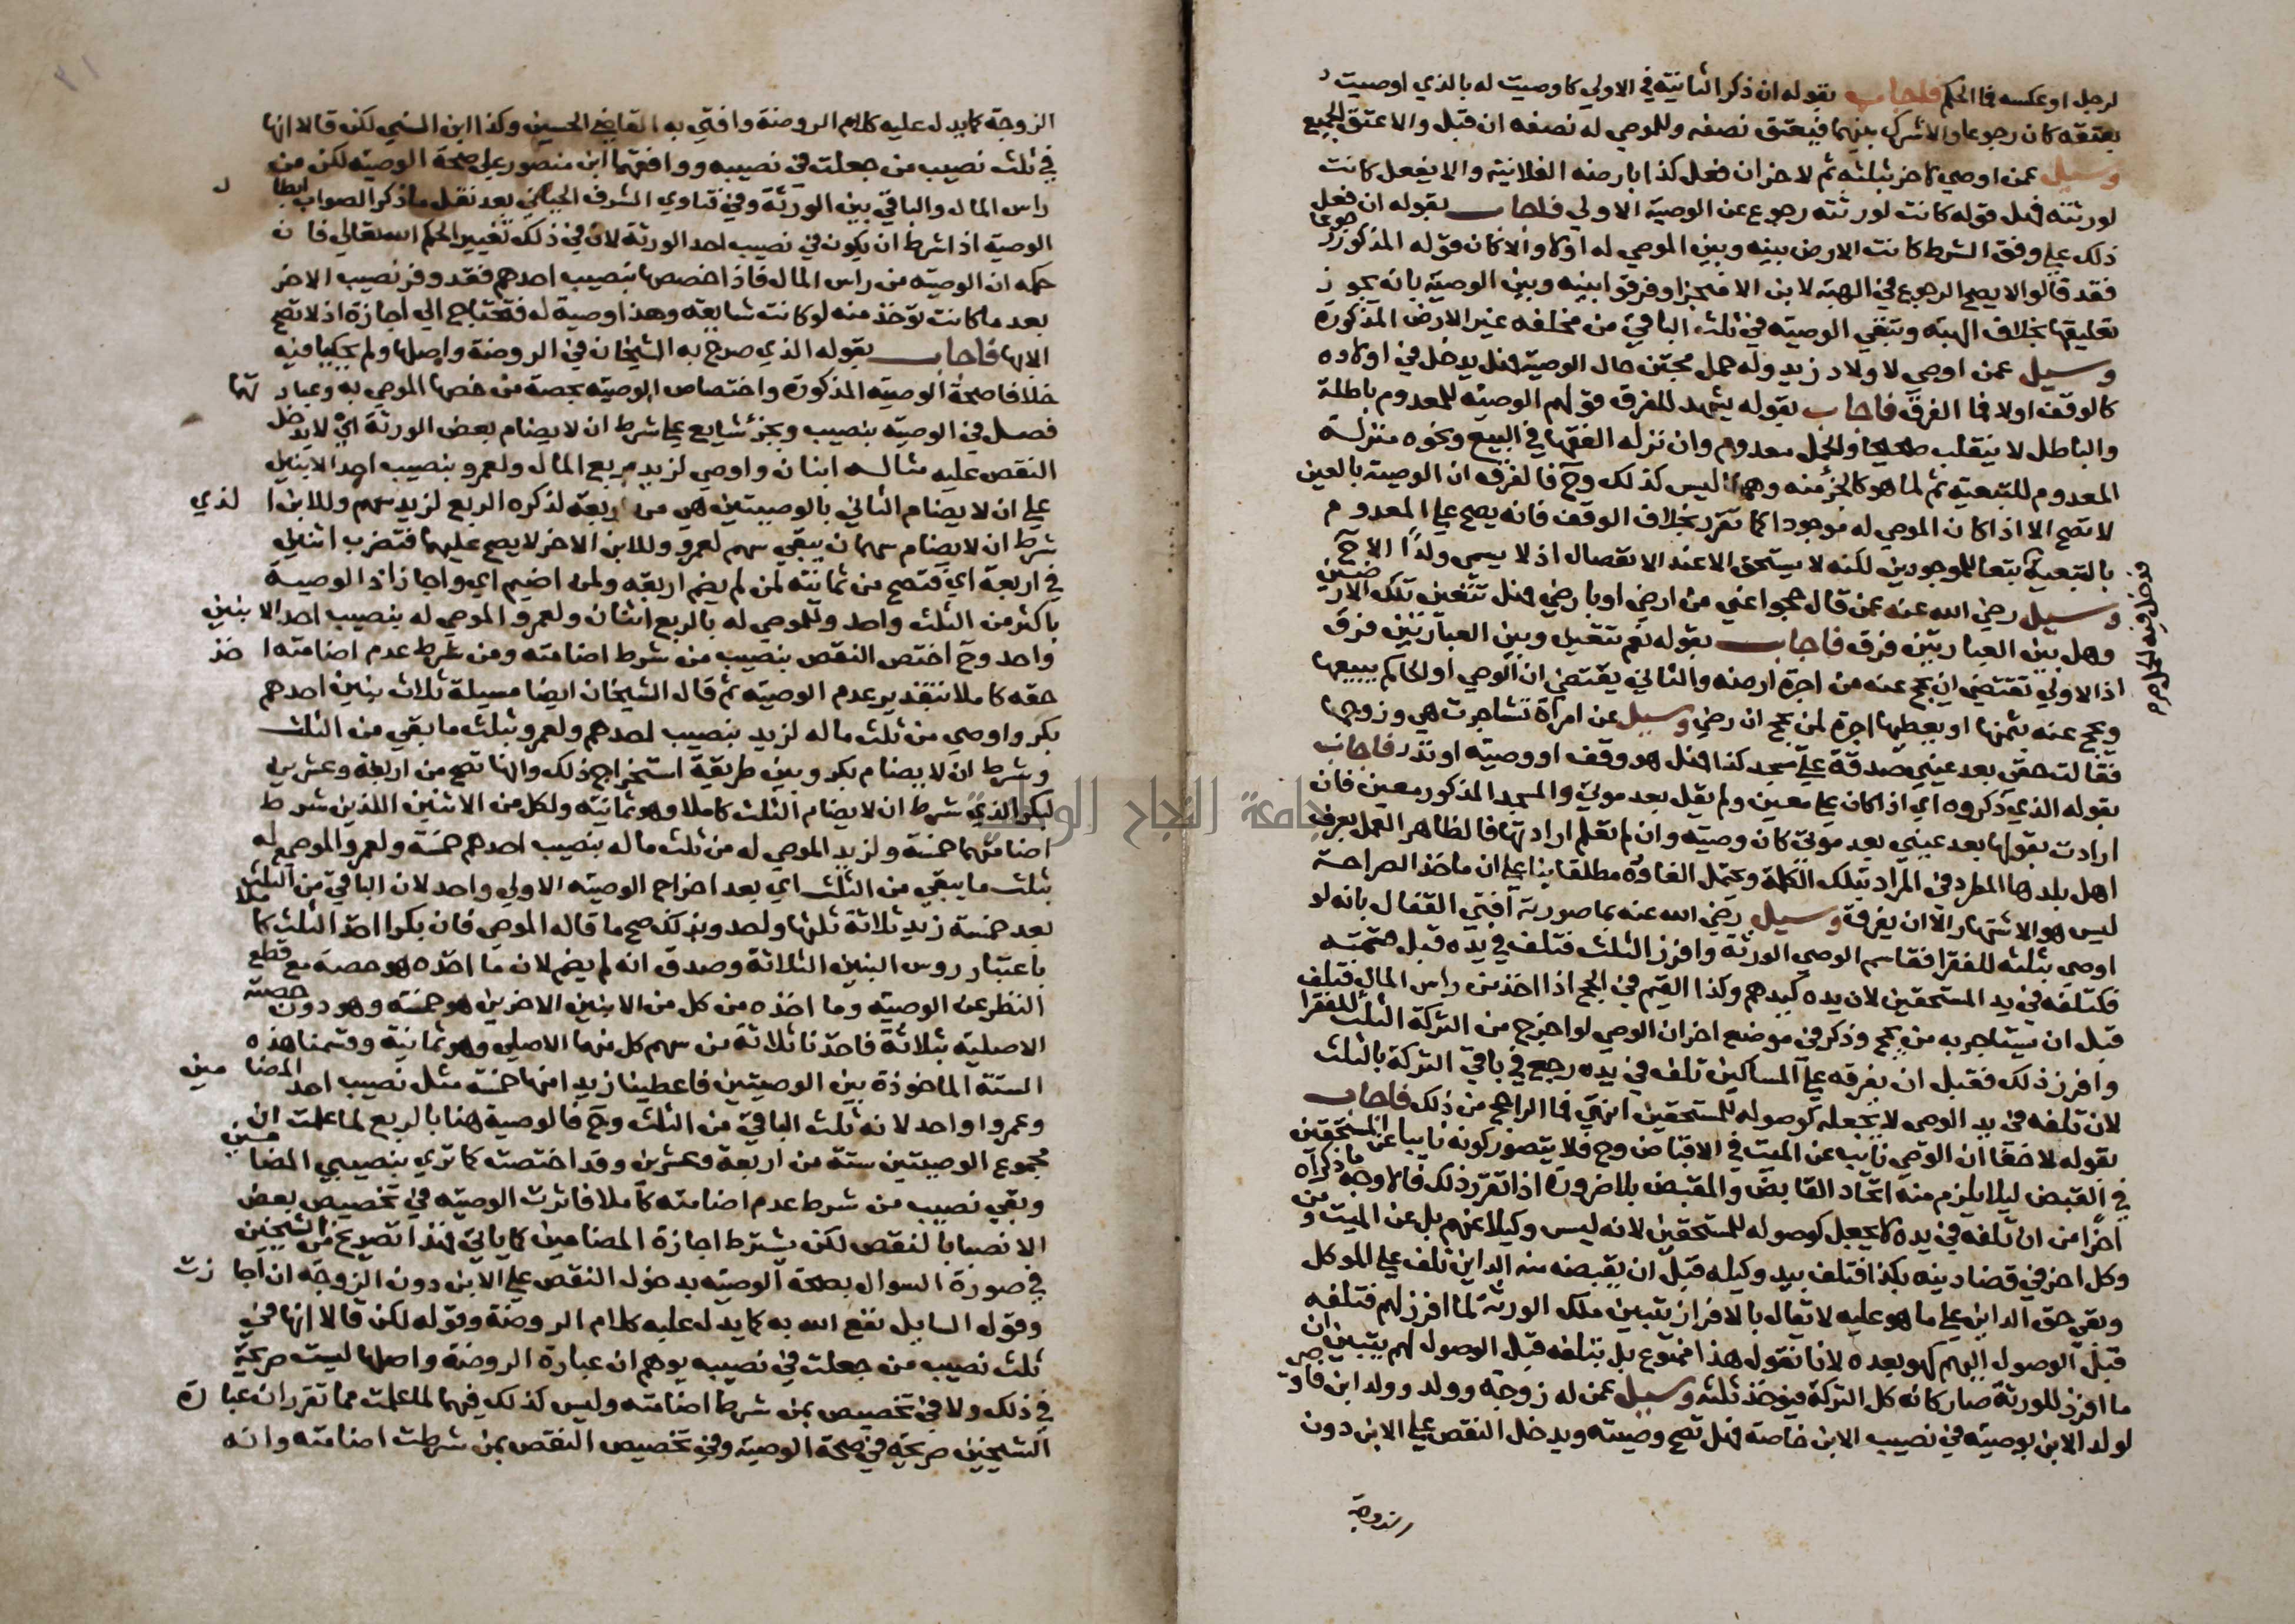 لرجل او عكسه فما الحكم فاجاب بقوله ان ذكر الثانية في الاولي كاوصيت له بالذي اوصيت
بعتقه كان رجوعا والا شرك بينهما فيعتق نصفه وللموصي له نصفه ان قبل والا عتق الجميع
وسيل عمن اوصي لاخر بثلثه ثم لاخر ان فعل كذا بارضه الفلانية والا يفعل كانت
لورثته فهل قوله كانت لورثته رجوع عن الوصية الاولي فاجاب بقوله ان فعل
ذلك علي وفق الشرط كانت الارض بينه وبين الموصي له اولا والا كان قوله المذكور رجوعا
فقد قالوا لا يصح الرجوع في الهبة لابن الا منجزا وفرقوا بينه وبين الوصية بانه يجوز
تعليقها بخلاف الهبة وتبقي الوصية في ثلث الباقي من مخلفه غير الارض المذكورة
وسيل عمن اوصي لاولاد زيد وله حمل مجتن حال الوصية فهل يدخل في اولاده
كالوقف اولا فما الفرق فاجاب بقوله يشهد للفرق قولهم الوصية للمعدوم باطلة
والباطل لا ينقلب صحيحا والحمل معدوم وان نزله الفقها في البيع ونحوه منزلة
المعدوم للتبعية ثم لما هو كالجزء منه وهما ليس كذلك وح فالفرق ان الوصية بالعين
لا تصح الا اذا كان الموصي له موجودا كما تقرر بخلاف الوقف فانه يصح علي المعدوم
بالتبعية تبعا للموجودين لكنه لا يستحق الا عند الانفصال اذ لا يسمي ولدا الا ح
وسيل رضي الله عنه عمن قال حجوا عني من ارضي او بارضي فهل تتعين تلك الارضين
وهل بين العبارتين فرق فاجاب بقوله نعم تتعين وبين العبارتين فرق
اذ الاولي تقتضي ان يحج عنه من اجرة ارضه والثاني يقتضي ان الوصي او الحاكم يبيعها
ويحج عنه بثمنها او يعطيها اجرة لمن يحج ان رضي وسيل عن امراة تشاجرت هي وزوجها
فقالت حقي بعد عيني صدقة علي مسجد كذا فهل هو وقف او وصية او نذر فاجاب
بقوله الذي ذكروه اي اذا كان علي معين ولم يقل بعد موتي والمسجد المذكور معين فان
ارادت بقولها بعد عيني بعد موتي كان وصية وان لم تعلم ارادتها فالظاهر العمل بعرف
اهل بلدها المطرد في المراد بتلك الكلمة ويحتمل الغاؤه مطلقا بنا علي ان ماخذ الصراحة
ليس هو الاشتهار الا ان يفرق وسيل رضي الله عنه بما صورته افتي القفال بانه لو
اوصي بثلثه للفقرا فقاسم الوصي الورثة وافرز الثلث فتلف في يده قبل قسمته
فكتلفه في يد المستحقين لان يده كيدهم وكذا القيم في الحج اذا اخذ من راس المال فتلف
قبل ان يستاجر به من يحج وذكر في موضع اخر ان الوصي لو اخرج من التركة الثلث للفقرا
وافرز ذلك فقبل ان يفرقه علي المساكين تلف في يده رجع في باقي التركة بالثلث
لان تلفه في يد الوصي لا يجعله كوصوله للمستحقين انتهي فما الراجح من ذلك فاجاب
بقوله لا خفا ان الوصي نايب عن الميت في الاقباض وح فلا يتصور كونه نايبا عن المستحقين
في القبض ليلا يلزم منه اتحاد القابض والمقبض بلا ضرورة اذا تقرر ذلك فالاوجه ما ذكراه
اخرا من ان تلفه في يده لا يجعل كوصوله للمستحقين لانه ليس وكيلا عنهم بل عن الميت ومن
وكل اخر في قضا دينه بكذا فتلف بيد وكيله قبل ان يقبضه منه الداين تلف علي الموكل
وبقي حق الداين علي ما هو عليه لا يقال بالافراز تبين ملك الورثة لما افرز لهم فتلفه
قبل الوصول اليهم كهو بعده لانا نقول هذا ممنوع بل بتلفه قبل الوصول لهم يتبين ان
ما افرز للورثة صار كانه كل التركة فيوخذ ثلثه وسيل عمن له زوجة وولد وولد ابن فاوصي
لولد الابن بوصية في نصيب الابن خاصة فهل تصح وصيته ويدخل النقص علي الابن دون
الزوجة
الزوجة كما يدل عليه كلام الروضة وافتي به القاضي الحسين وكذا ابن السني لكن قالا انها
في ثلث نصيب من جعلت في نصيبه ووافقهما ابن منصور علي صحة الوصية لكن من
راس المال والباقي بين الورثة وفي فتاوي الشرف الجباني بعد نقل ما ذكر الصواب ابطال
الوصية اذا شرط ان يكون في نصيب احد الورثة لان في ذلك تغيير الحكم الله تعالي فان
حكمه ان الوصية من راس المال فاذا خصصها بنصيب احدهم فقد وفر نصيب الاخر
بعد ما كانت توخذ منه لو كانت شايعة وهذا وصية له فتحتاج الي اجازة اذ لا تصح
الا بها فاجاب بقوله الذي صرح به الشيخان في الروضة واصلها ولم يحكيا فيه
خلافا صحة الوصية المذكورة واختصاص الوصية بحصة من خصها الموصي به وعبارتها
فصل في الوصية بنصيب وبجزء شايع علي شرط ان لا يضام بعض الورثة اي لا يدخل
النقص عليه مثاله ابنان واوصي لزيد بربع المال ولعمرو بنصيب احد الابنين
علي ان لا يضام الثاني بالوصيتين هي من اربعة لذكره الربع لزيد سهم وللابن الذي
شرط ان لا يضام سهمان يبقي سهم لعمرو وللابن الاخر لا يصح عليهما فتضرب اثنين
في اربعة اي فتصح من ثمانية لمن لم يضم اربعة ولمن اضيم اي واجاز اذ الوصية
باكثر من الثلث واحد وللموصي له بالربع اثنان ولعمرو الموصي له بنصيب احد الابنين
واحد وح اختص النقص بنصيب من شرط اضامته ومن شرط عدم اضامته اخذ
حقه كاملا بتقدير عدم الوصية ثم قال الشيخان ايضا مسيلة ثلاث بنين احدهم
بكر واوصي من ثلث ماله لزيد بنصيب احدهم ولعمرو بثلث ما بقي من الثلث
وشرط ان لا يضام بكر وبين طريقة استخراج ذلك وانها تصح من اربعة وعشرين
لبكر الذي شرط ان لا يضام الثلث كاملا وهو ثمانية ولكل من الاثنين اللذين شرط
اضامتهما خمسة ولزيد الموصي له من ثلث ماله بنصيب احدهم خمسة ولعمرو الموصي له
بثلث ما يبقي من الثلث اي بعد اخراج الوصية الاولي واحد لان الباقي من الثلث
بعد خمسة زيد ثلاثة ثلثها واحد وبذلك صح ما قاله الموصي فان بكرا اخذ الثلث كاملا
باعتبار روس البنين الثلاثة وصدق انه لم يضم لان ما اخذه هو حصته مع قطع
النظر عن الوصية وما اخذه من كل من الابنين الاخرين هو خمسة وهو دون حصته
الاصلية بثلاثة فاخذنا ثلاثة من سهم كل منهما الاصلي وهو ثمانية وقسمنا هذه
الستة الماخوذة بين الوصيتين فاعطينا زيدا منها خمسة مثل نصيب احد المضامين
وعمروا واحد لانه ثلث الباقي من الثلث وح فالوصية هنا بالربع لما علمت ان
مجموع الوصيتين ستة من اربعة وعشرين وقد اختصت كما تري بنصيبي المضامين
وبقي نصيب من شرط عدم اضامته كاملا فاثرت الوصية في تخصيص بعض
الانصبا بالنقص لكن يشترط اجازة المضامين كما ياتي فهذا تصريح من الشيخين
في صورة السوال بصحة الوصية بدخول النقص علي الابن دون الزوجة ان اجازت
وقول السايل نفع الله به كما يدل عليه كلام الروضة وقوله لكن قالا انها في
ثلث نصيب من جعلت في نصيبه يوهم ان عبارة الروضة واصلها ليست صريحة
في ذلك ولا في تخصيص بمن شرط اضامته وليس كذلك فيهما لما علمت مما تقرر ان عبارة
الشيخين صريحة في صحة الوصية وفي تخصيص النقص بمن شرطت اضامته وانه
جامعة النجاح الوطنية